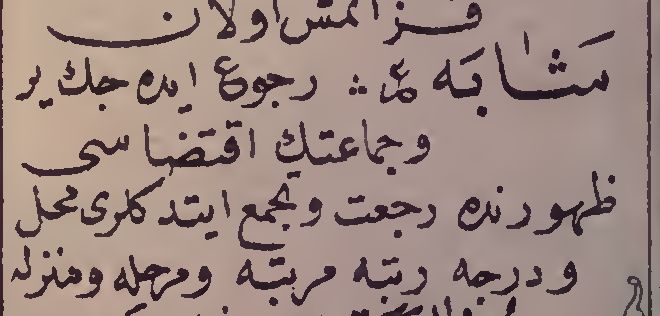 قزانمش اولان
مثابه رجوع ايده جك ير
وجماعتك اقتضاسى
ظهورنده رجعت وتجمع ايتدكلرى محل
ودرجه رتبه مرتبه ومرحله ومنزله